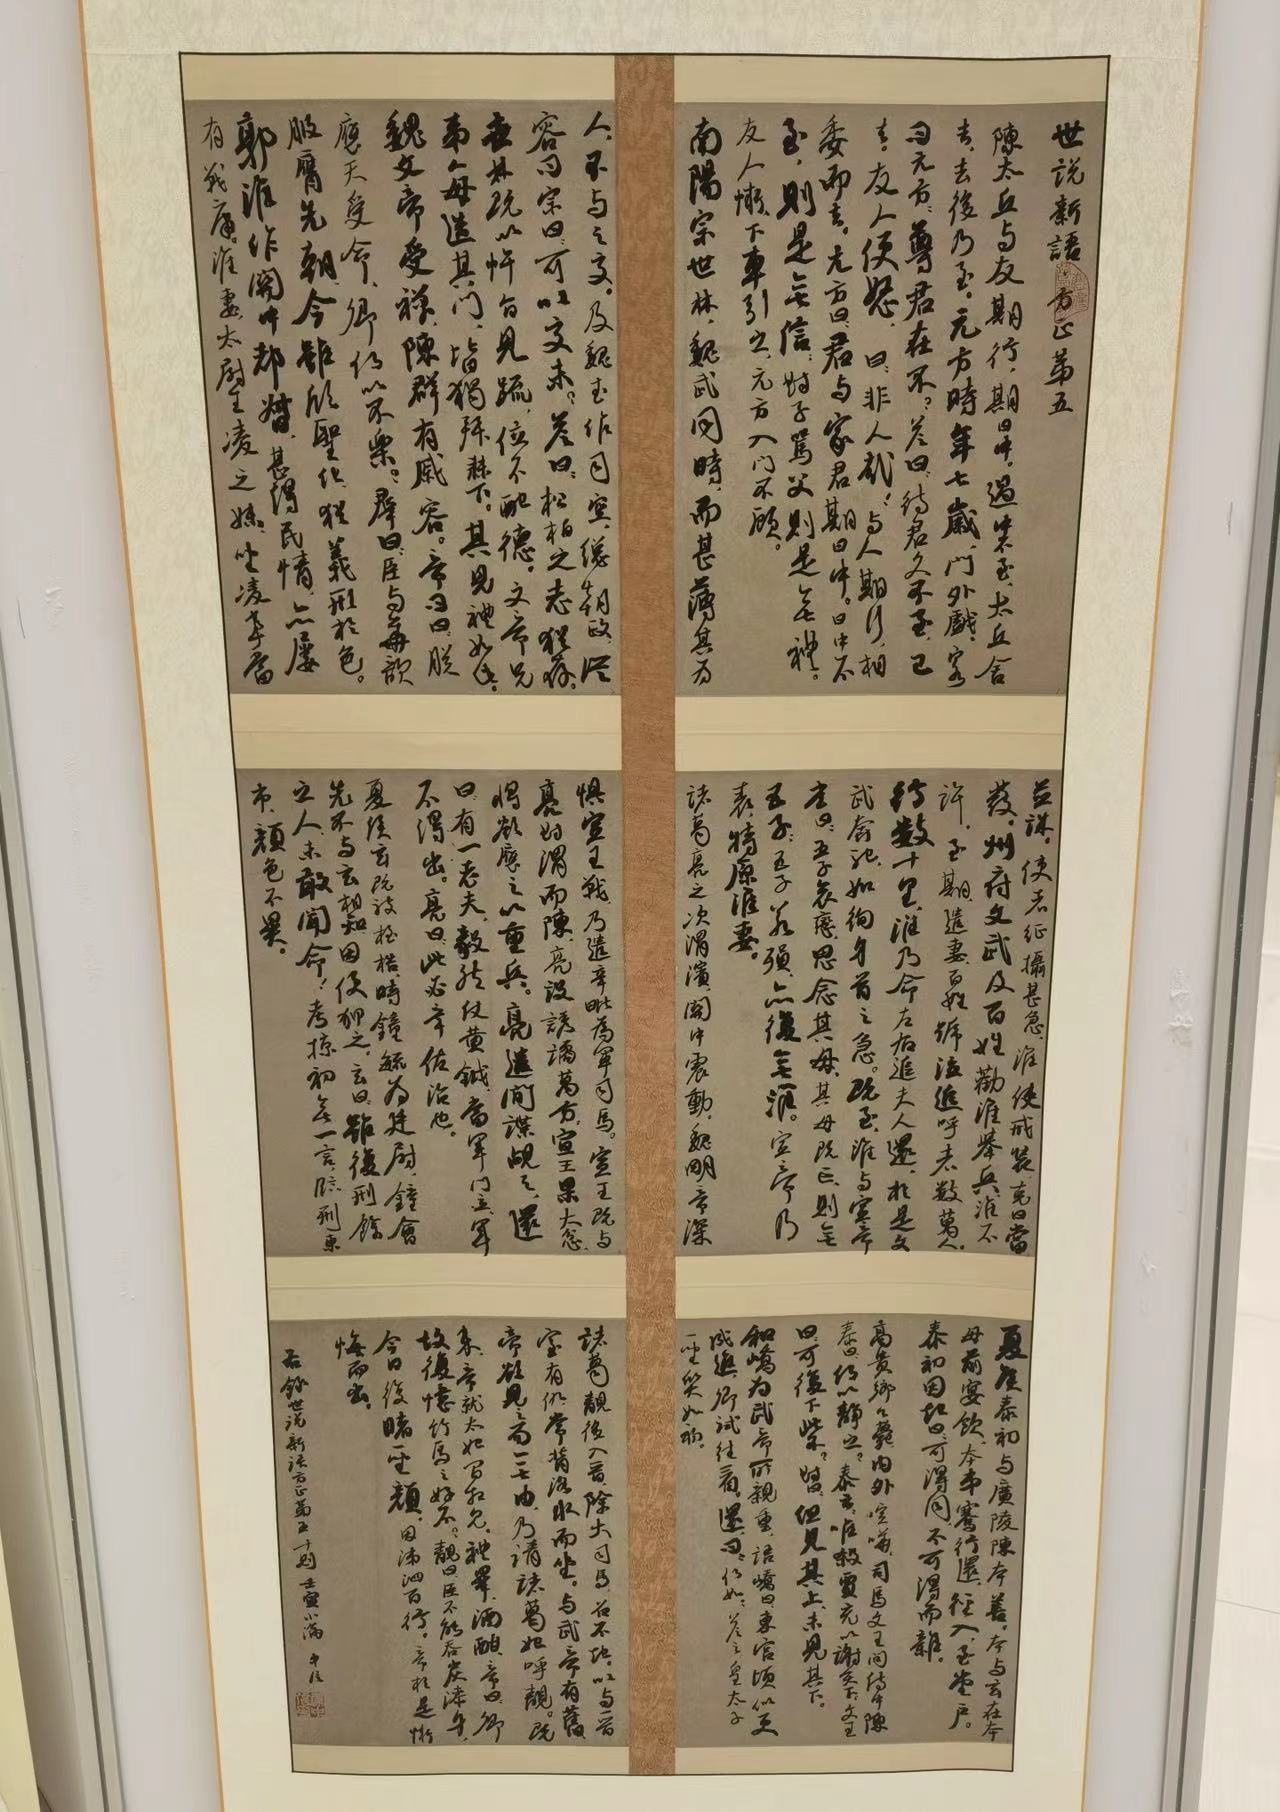 世說新語 方正第五
陳太丘与友期行，期日中。過中不至，太丘舍
去，去後乃至。元方時年七歲，門外戲。客
问元方：尊君在不？答曰：待君久不至，已
去。友人便怒，曰：非人哉！与人期行，相
委而去。元方曰：君与家君期日中。日中不
至，則是無信；對子罵父，則是無禮。
友人慚，下車引之，元方入門不顧。
南陽宗世林，魏武同時，而甚薄其为
人，不与之交。及魏武作司空，總朝政，從
容问宗曰：可以交未？答曰：松柏之志猶存。
世林既以忤旨見疏，位不配德。文帝兄
弟每造其門，皆獨拜牀下。其見禮如此。
魏文帝受禅，陳群有慼容。帝问曰：朕
應天受命，卿何以不樂？群曰：臣与華歆
服膺先朝，今雖欣聖化，猶義形於色。
郭淮作關中都督，甚得民情，亦屢
有戰庸。淮妻，太尉王凌之妹，坐凌事當
並誅。使者征攝甚急，淮使戒裝，克日當
發。州府文武及百姓勸淮舉兵，淮不
許。至期，遣妻，百姓號泣追呼者數萬人。
行数十里，淮乃命左右追夫人還，於是文
武奔馳，如徇身首之急。既至，淮与宣帝
書曰：五子哀戀，思念其母，其母既亡，則無
五子；五子若殞，亦復無淮。宣帝乃
表，特原淮妻。
諸葛亮之次渭濱，關中震動。魏明帝深
懼宣王戰，乃遣辛毗為軍司馬。宣王既与
亮对渭而陳，亮設誘譎萬方，宣王果大忿，
將欲應之以重兵。亮遣間諜覘之，還
曰：有一老夫，毅然仗黄鉞，當軍門立，軍
不得出。亮曰：此必辛佐治也。
夏侯玄既被桎梏，時鍾毓为廷尉，鍾會
先不与玄相知，因便狎之。玄曰：雖復刑餘
之人，未敢聞命！考掠初無一言，臨刑東
市，顏色不異。
夏侯泰初与廣陵陳本善。本与玄在本
母前宴飲，本弟騫行還，徑入，至堂户。
泰初因起曰：可得同，不可得而雜。
高貴鄉公薨，内外喧嘩。司馬文王问侍中陳
泰曰：何以静之？泰云：唯殺賈充以謝天下。文王
曰：可復下此？對曰：但見其上，未見其下。
和嶠为武帝所親重，語嶠曰：東宫頃似更
成進，卿試往看。還，问：何如？答云：皇太子
聖質如初。
諸葛靚後入晋，除大司馬，召不起。以与晋
室有仇，常背洛水而坐。与武帝有舊，
帝欲見之而無由，乃請諸葛妃呼靚。既
来，帝就太妃间相見。禮畢，酒酣，帝曰：卿
故復憶竹馬之好不？靚曰：臣不能吞炭漆身，
今日復睹聖顏。因涕泗百行。帝於是慚
悔而出。
右錄世說新語方正第五十則 壬寅小滿